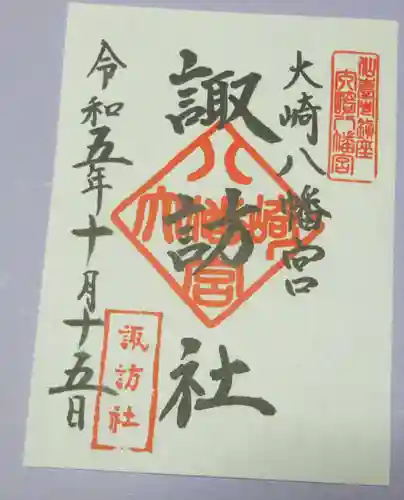 大崎八幡宮
諏訪社
令和五年十月十五日
仙臺總鎮座
大崎八幡宮
大崎八幡宮
諏訪社